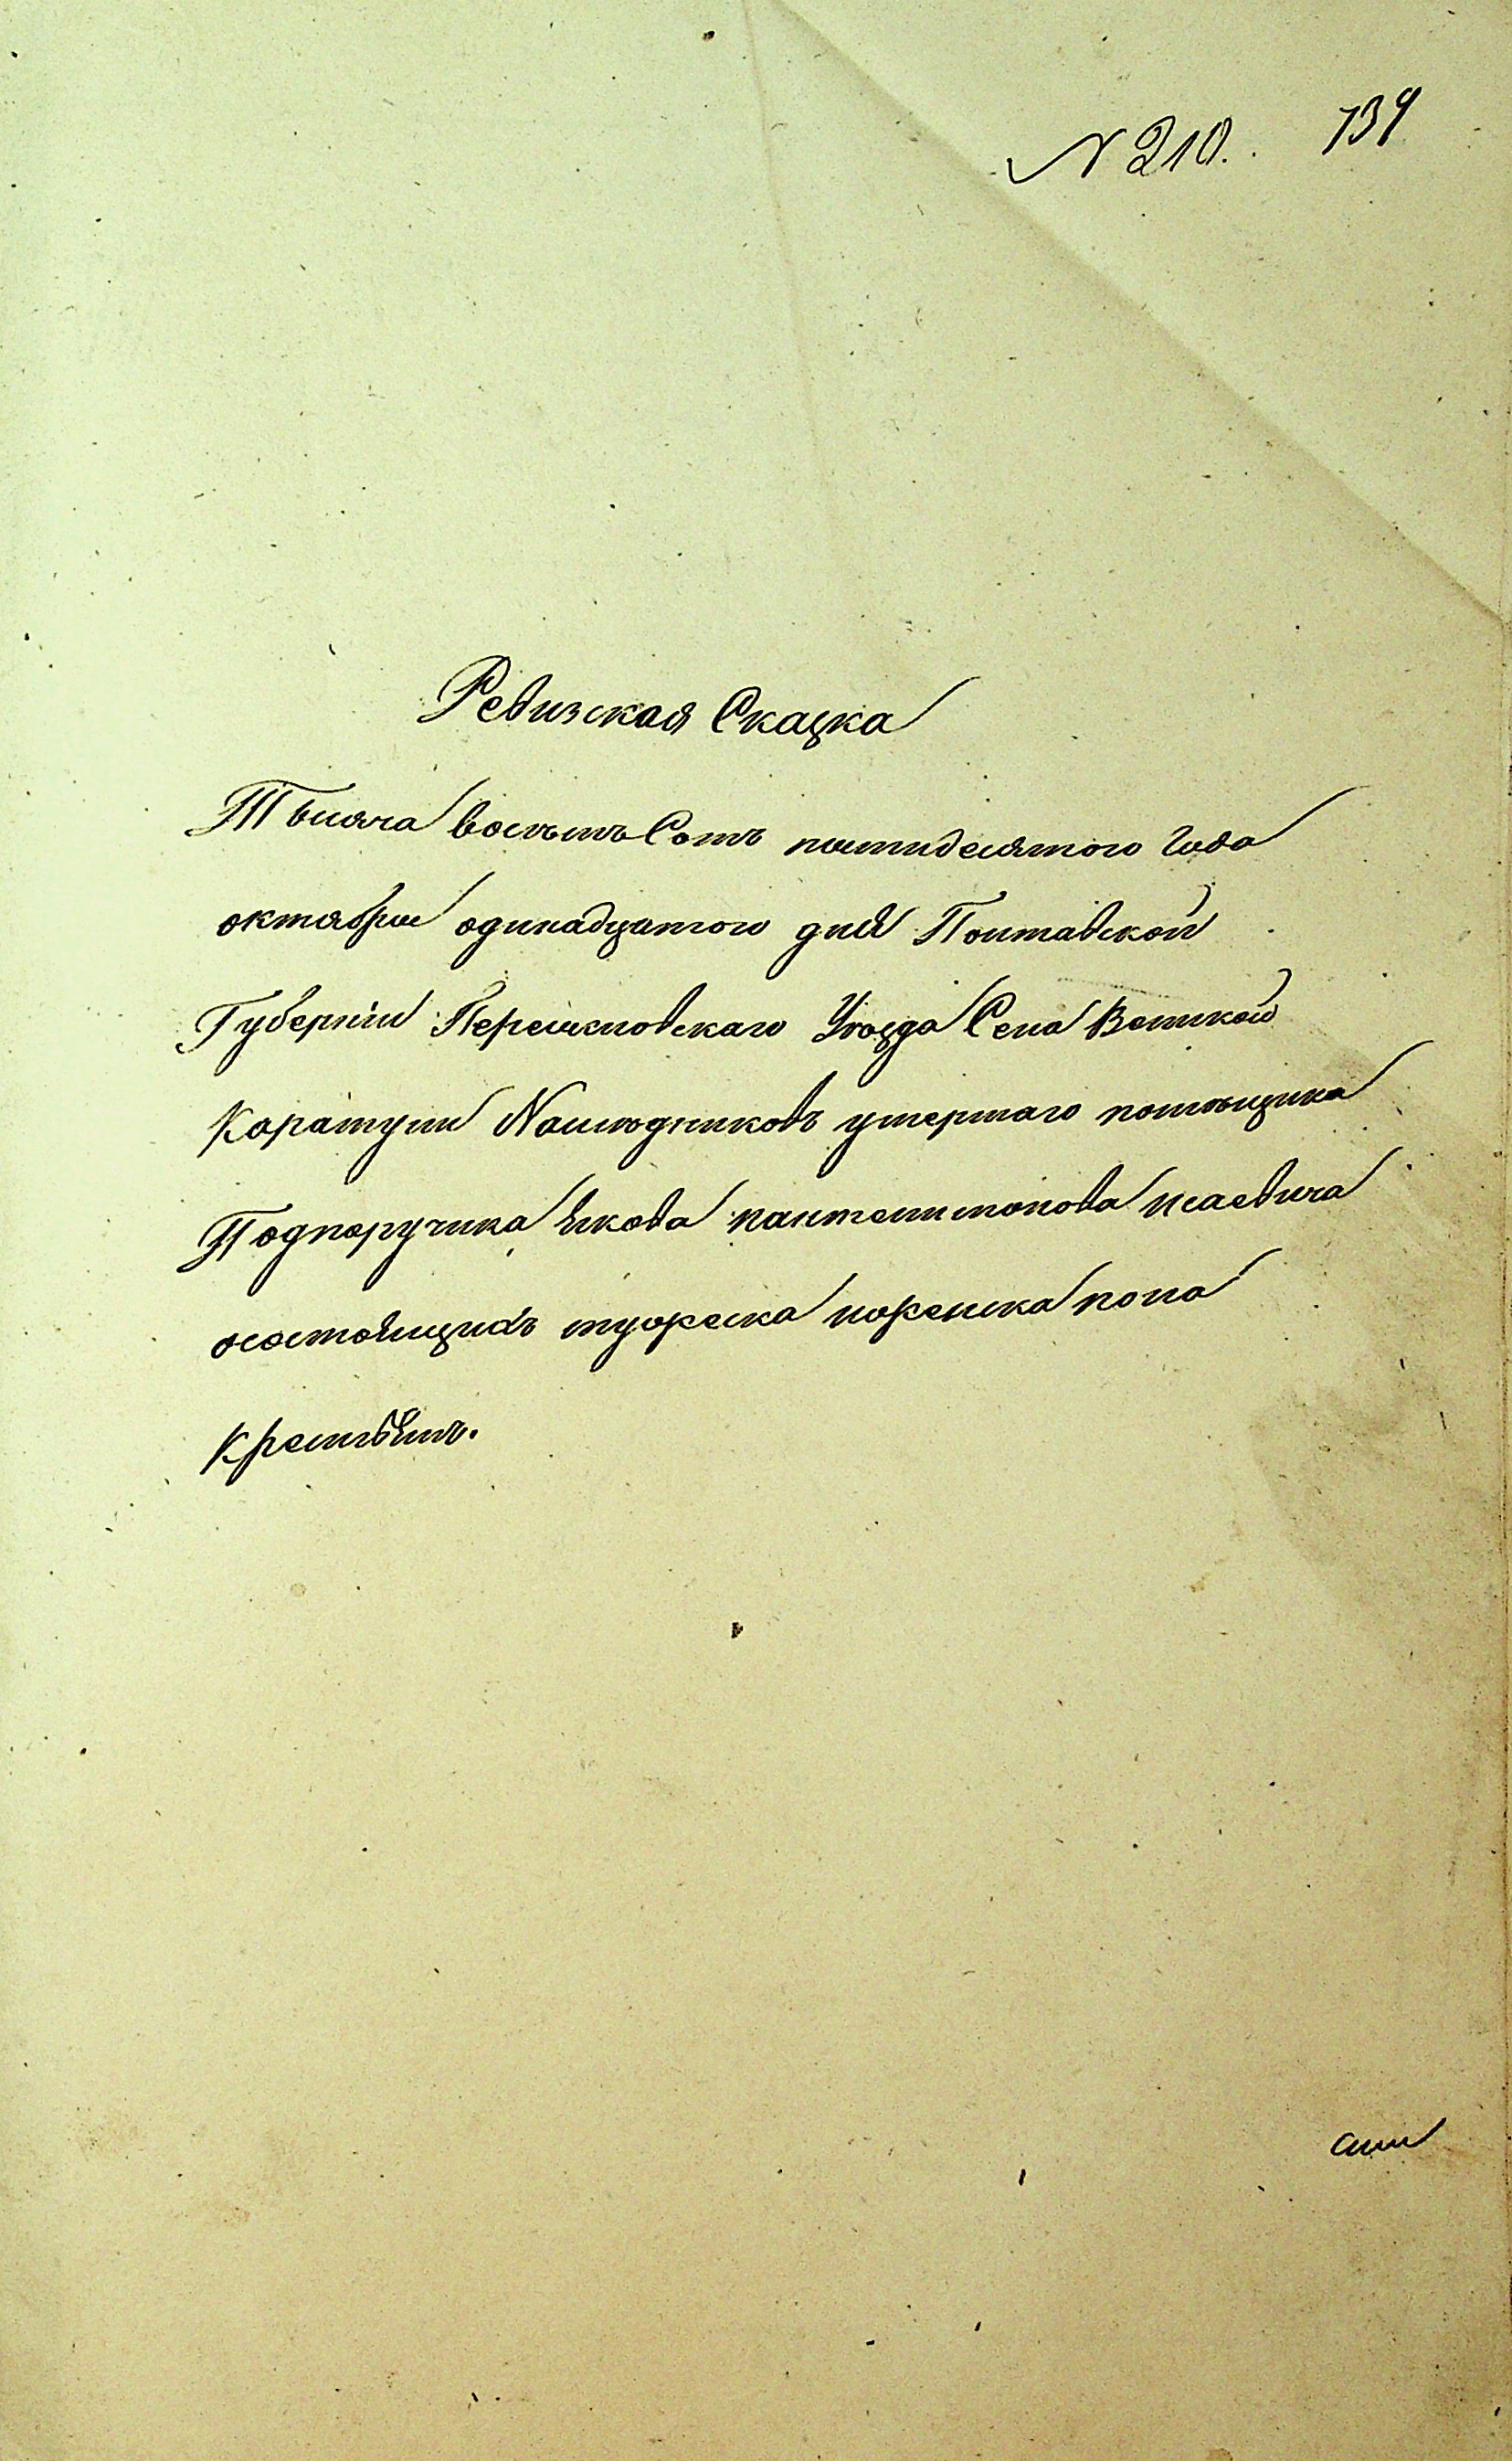 N 210. 139
Ревизская Сказка
Тысяча восемь Сотъ пятидесятого года
октября одинадцатого дня Полтавской
Губерніи Переяславскаго Уѣзда Села Великой
Каратули Наслѣдниковъ умершаго помѣщика
Подпоручика Якова пантелимонова исаевича
осостоящихъ мужеска иженска пола
крестьянъ.